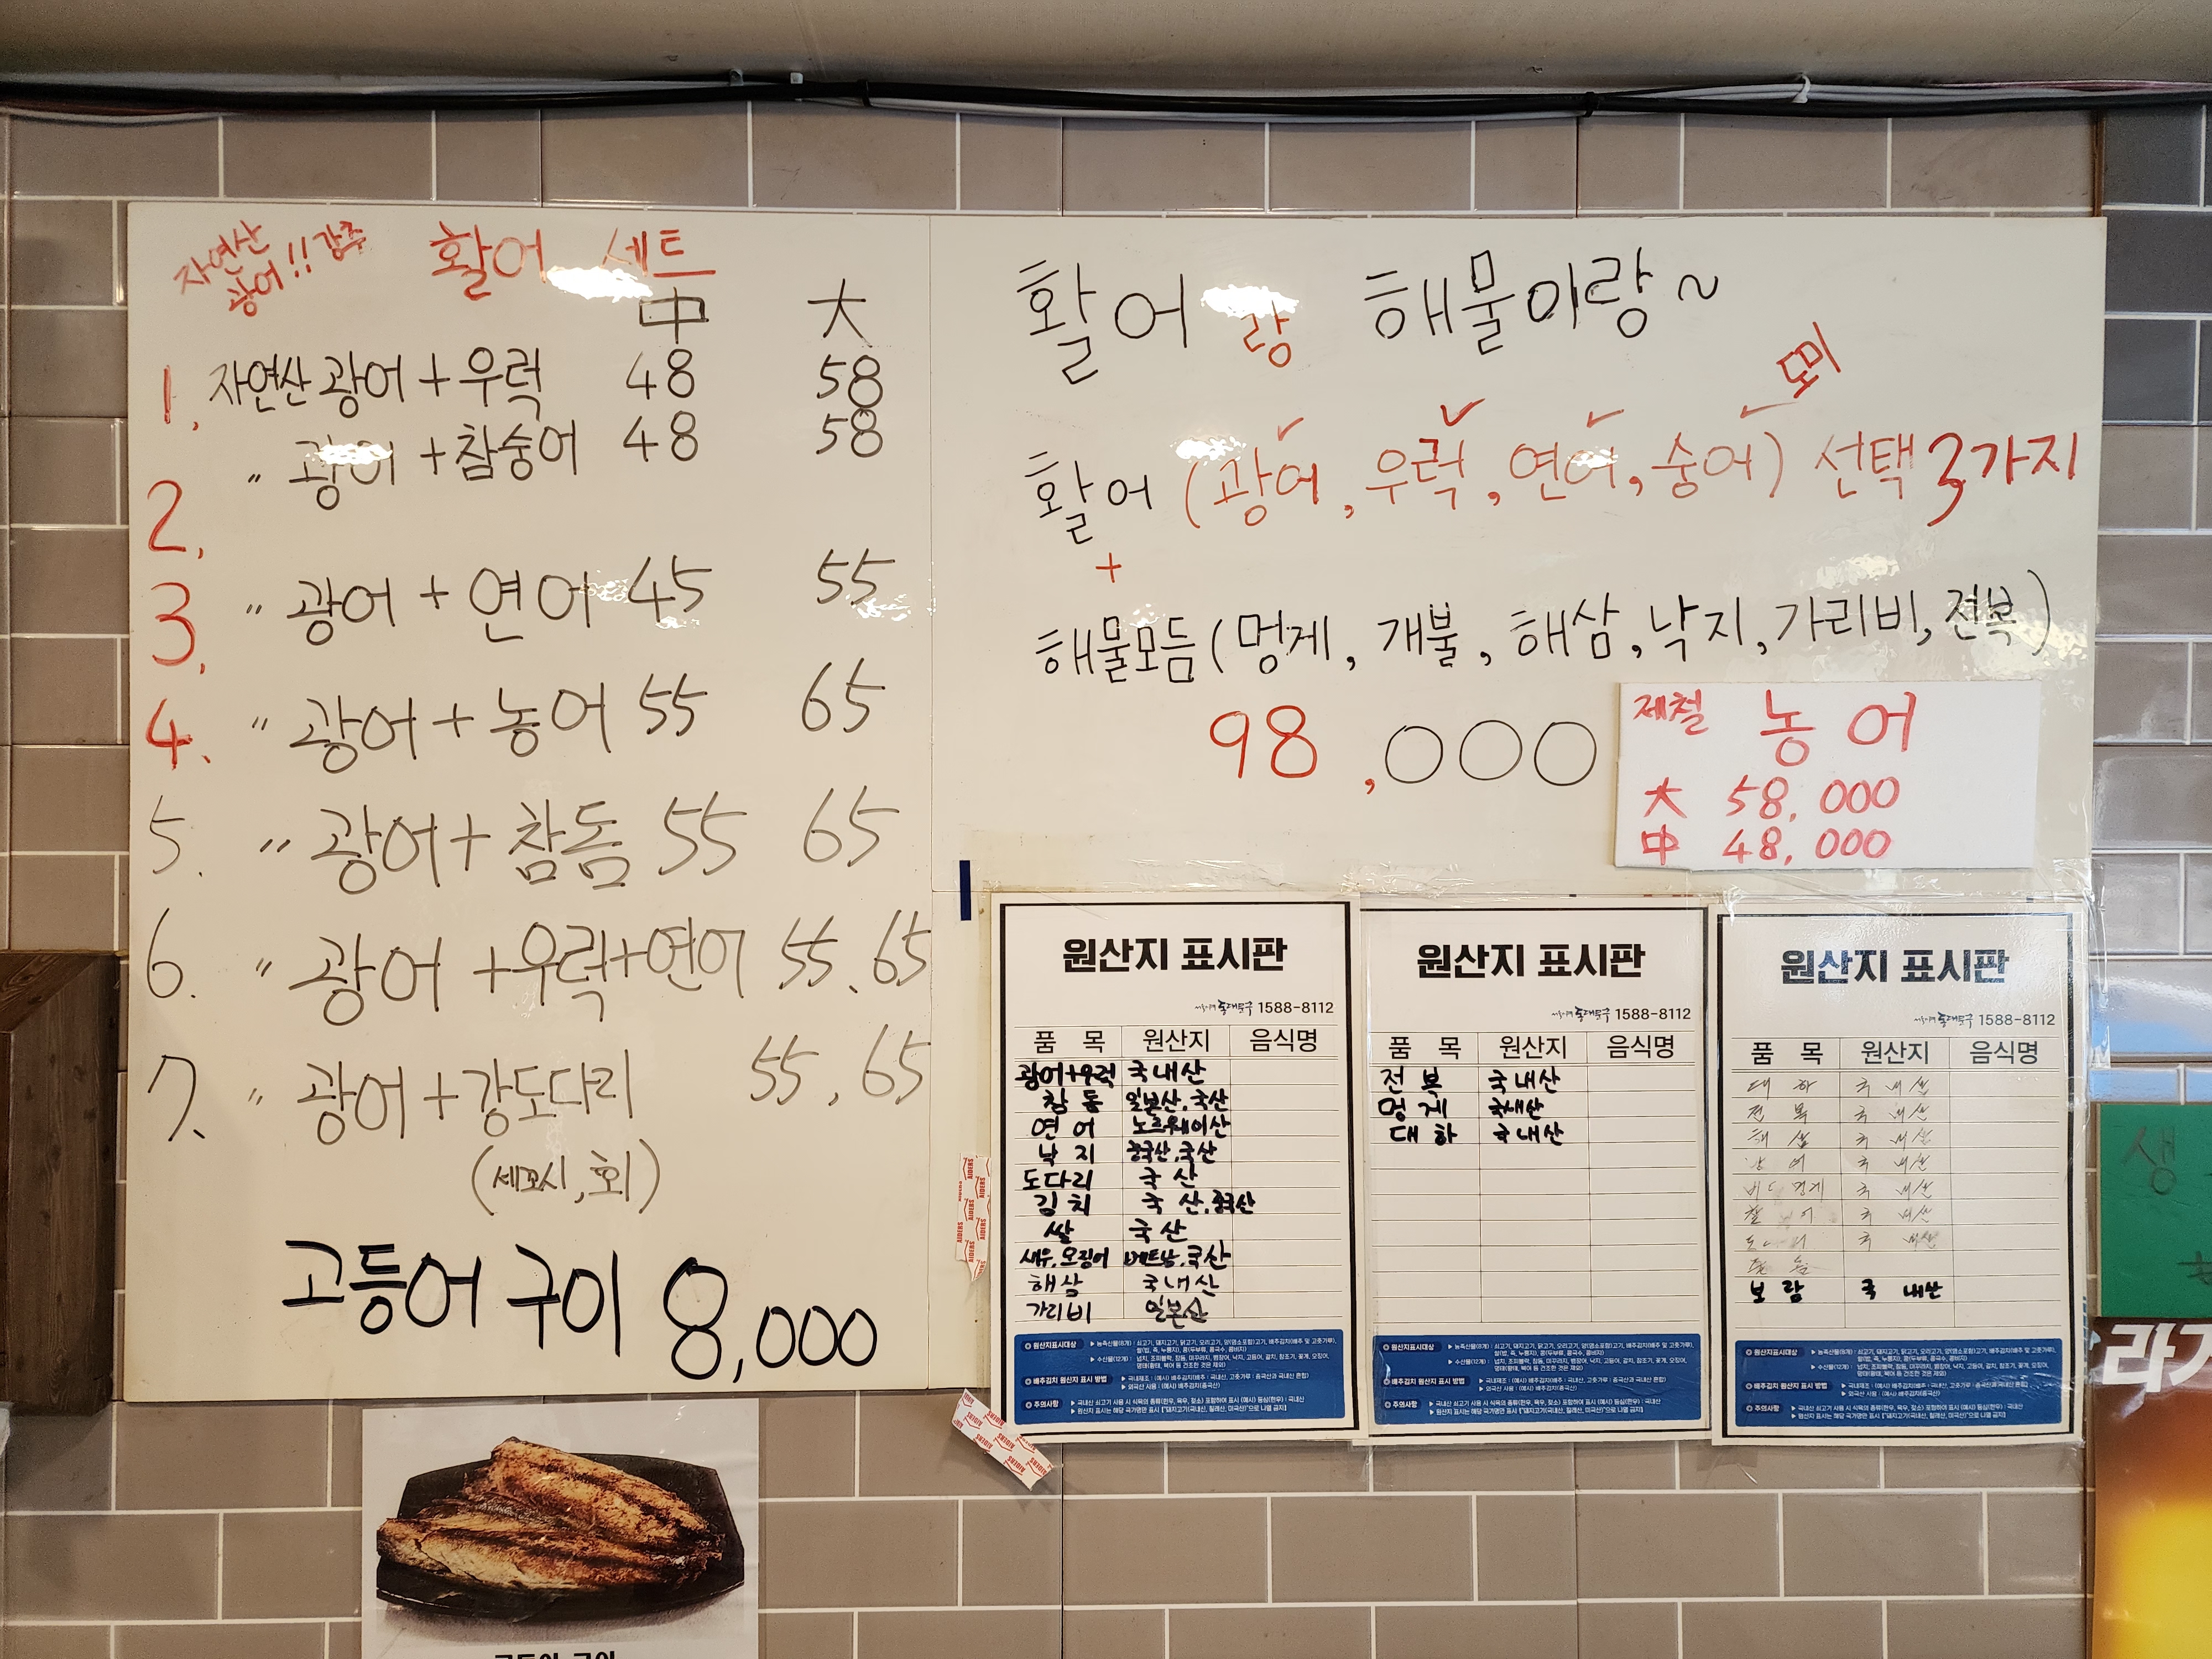 자연산
광어!! 강추
활어 세트
中 大
1. 자연산 광어 + 우럭 48 58
2. 〃 광어 + 참숭어 48 58
3. 〃 광어 + 연어 45 55
4. 〃 광어 + 농어 55 65
5. 〃 광어 + 참돔 55 65
6. 〃 광어 + 우럭 + 연어 55. 65
7. 〃 광어 + 강도다리 55, 65
(세꼬시, 회)
고등어 구이 8,000
활어랑 해물이랑~
도미
활어 (광어, 우럭, 연어, 숭어) 선택 3가지
+
해물모듬 (멍게, 개불, 해삼, 낙지, 가리비, 전복)
98,000
제철 농어
大 58,000
中 48,000
원산지 표시판
1588-8112
품 목 원산지 음식명
광어+우럭 국내산
참돔 일본산, 국산
연어 노르웨이산
낙지 중국산, 국산
도다리 국산
김치 국산, 중국산
쌀 국산
새우, 오징어 베트남, 국산
해삼 국내산
가리비 일본산
원산지표시대상
배추김치 원산지 표시 방법
주의사항
원산지 표시판
1588-8112
품 목 원산지 음식명
전복 국내산
멍게 국내산
대하 국내산
원산지표시대상
배추김치 원산지 표시 방법
주의사항
원산지 표시판
1588-8112
품 목 원산지 음식명
대하 국내산
전복 국내산
해삼 국내산
국내산
멍게 국내산
국내산
국내산
보람 국내산
원산지표시대상
배추김치 원산지 표시 방법
주의사항
생
라거